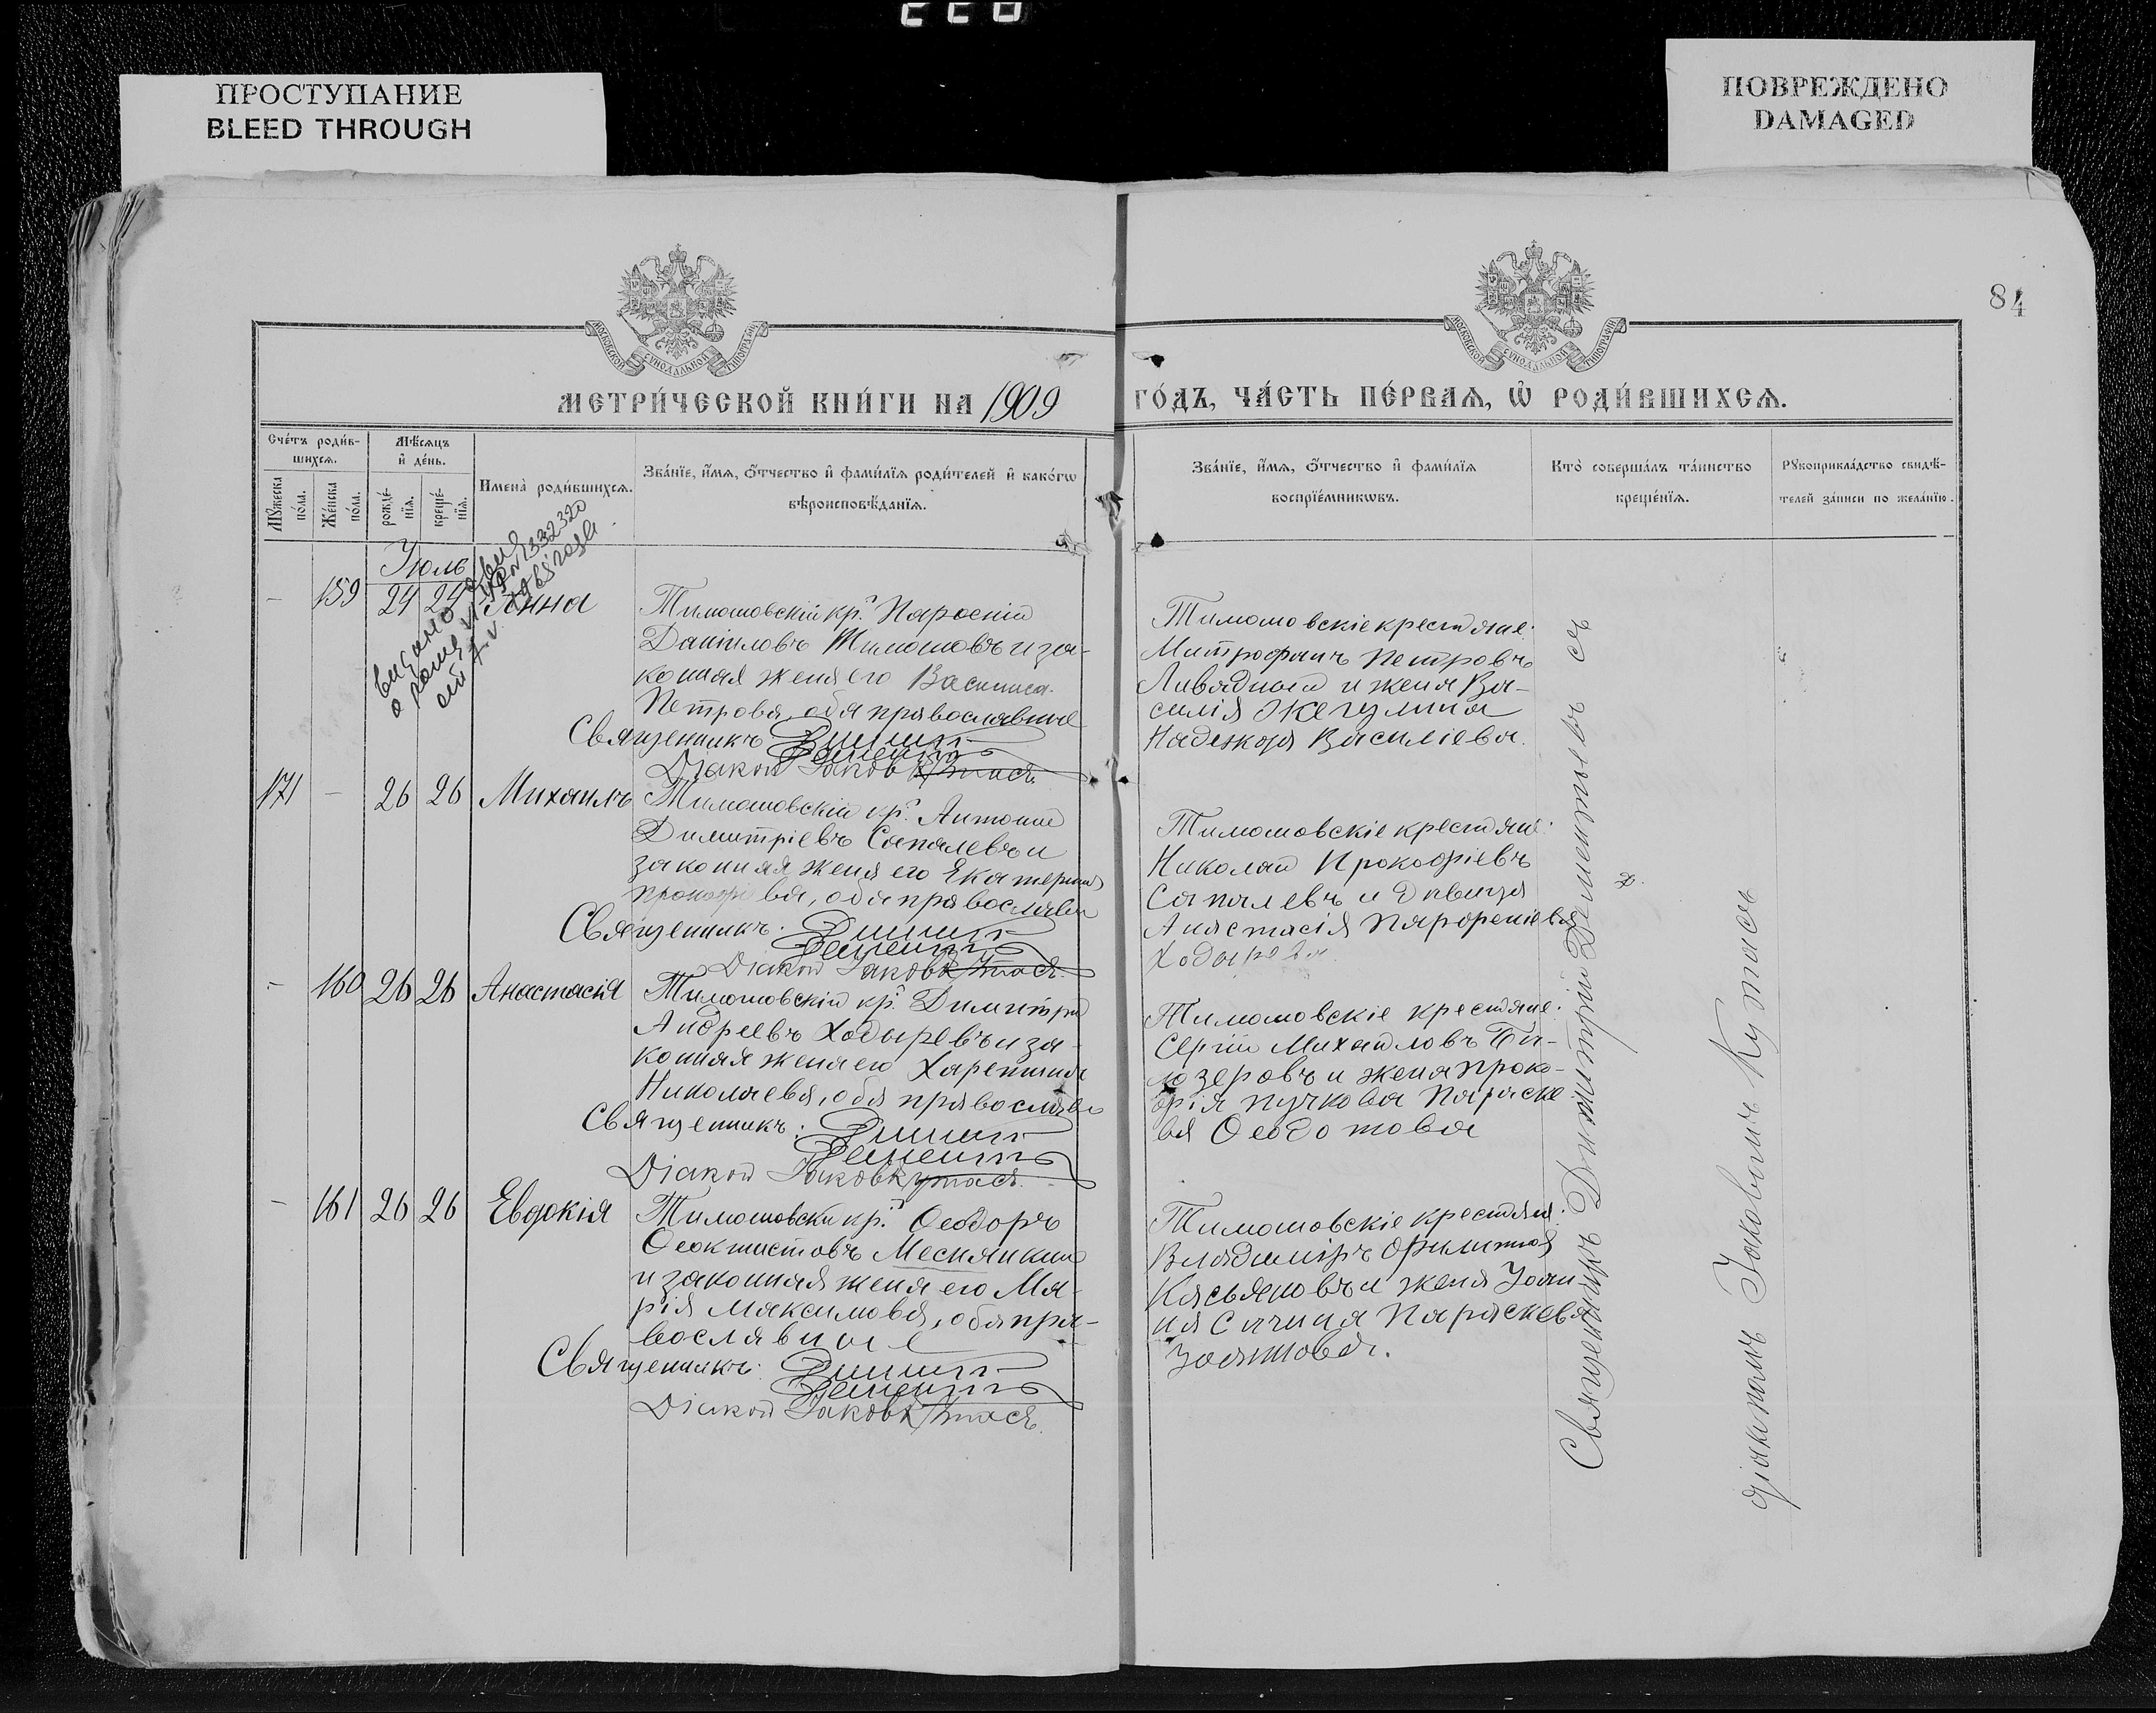 ПРОСТУПАНИЕ
BLEED THROUGH
ПОВРЕЖДЕНО
DAMAGED
84
МОСКОВСКОЙ СУНОДАЛЬНОЙ ТИПОГРАФІИ
МОСКОВСКОЙ СУНОДАЛЬНОЙ ТИПОГРАФІИ
МЕТРИ́ЧЕСКОЙ КНИ́ГИ НА 1909
ГО́ДЪ, ЧА́СТЬ ПЕ́РВАѦ, Ѡ҆ РОДИ́ВШИХСѦ.
Сче́тъ роди́в-
шихсѧ.
Мꙋжеска
по́ла.
Же́нска
по́ла.
Мѣ́сѧцъ
и҆ де́нь.
рожде́-
нїѧ.
креще́-
нїѧ.
И҆мена̀ роди́вшихсѧ.
Зва́нїе, и҆́мѧ, ѻ҆́тчество и҆ фами́лїѧ роди́телей и҆ како́гѡ
вѣроисповѣ́данїѧ.
Зва́нїе, и҆́мѧ, ѻ҆́тчество и҆ фами́лїѧ
воспрїе́мникѡвъ.
Кто̀ соверша́лъ та́инство
креще́нїѧ.
Рꙋкоприкла́дство свидѣ́-
телей за́писи по жела́нїю.
Іюль
- 159 24 24 Анна
Тимошовскій кр.
Даніиловъ Тимошовъ и за-
конная жена его Василиса
Петрова, оба православные
Священникъ
Діакон Іаковъ Кутасъ
Тимошовскіе крестьяне:
Митрофанъ Петровъ
Ливадный и жена Ва-
силія Жегулина
Надежда Василіева.
171 - 26 26 Михаилъ
Тимошовскій кр. Антоній
Димитріевъ Сапалевъ и
законная жена его Екатерина
Прокофіева, оба православн
Священникъ:
Діакон Іаковъ Кутасъ
Тимошовскіе крестьяне:
Николай Прокофіевъ
Сапалевъ и дѣвица
Анастасія Парфеніева
Ходырева
- 160 26 26 Анастасія
Тимошовскій кр. Димитрій
Андреевъ Ходыревъ и за-
конная жена его Харитина
Николаева, оба православн
Священникъ:
Діакон Іаковъ Кутасъ
Тимошовскіе крестьяне:
Сергій Михаиловъ Бѣ-
лозеровъ и жена Проко-
фія Пучкова Параске-
ва Ѳеодотова
- 161 26 26 Евдокія
Тимошовскій кр. Ѳеодоръ
Ѳеоктистовъ Меснянкин
и законная жена его Ма-
рія Максимова, оба пра-
вославные
Священникъ:
Діакон Іаковъ Кутасъ
Тимошовскіе крестьяне:
Владиміръ Филиппов
Касьяновъ и жена Іоан-
на Сычина Параскева
Зоятова.
Священникъ Димитрій Дементьевъ съ
діакономъ Іаковомъ Кутасъ